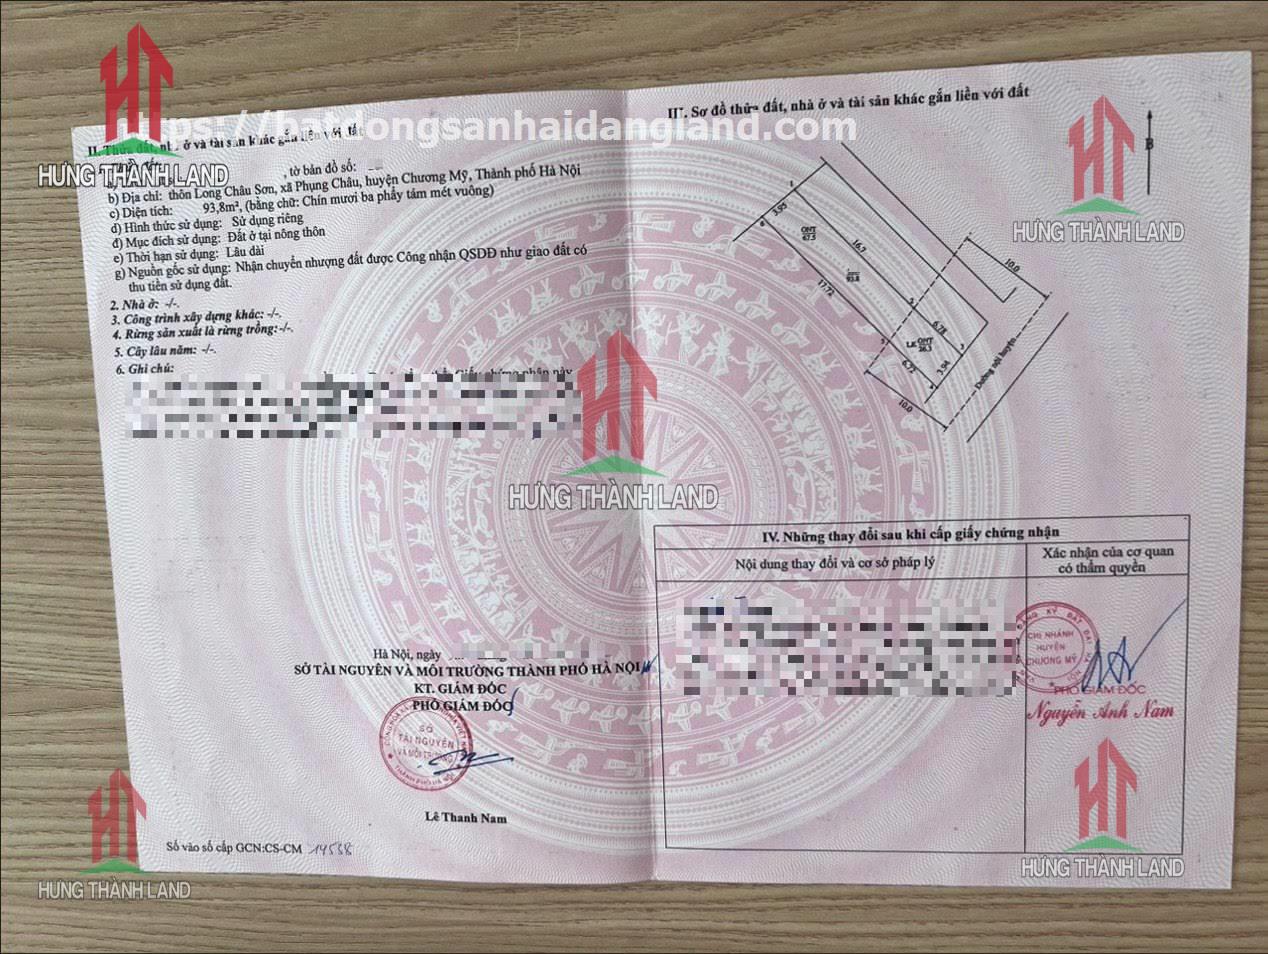 https://batdongsanhaidangland.com
HƯNG THÀNH LAND
II. Thửa đất, nhà ở và tài sản khác gắn liền với đất
, tờ bản đồ số:
b) Địa chỉ: thôn Long Châu Sơn, xã Phụng Châu, huyện Chương Mỹ, Thành phố Hà Nội
c) Diện tích: 93,8m², (bằng chữ: Chín mươi ba phẩy tám mét vuông)
d) Hình thức sử dụng: Sử dụng riêng
đ) Mục đích sử dụng: Đất ở tại nông thôn
e) Thời hạn sử dụng: Lâu dài
g) Nguồn gốc sử dụng: Nhận chuyển nhượng đất được Công nhận QSDĐ như giao đất có
thu tiền sử dụng đất.
2. Nhà ở: -/-.
3. Công trình xây dựng khác: -/-.
4. Rừng sản xuất là rừng trồng:-/-.
5. Cây lâu năm: -/-.
6. Ghi chú:
Giấy chứng nhận này
HƯNG THÀNH LAND
Hà Nội, ngày
SỞ TÀI NGUYÊN VÀ MÔI TRƯỜNG THÀNH PHỐ HÀ NỘI
KT. GIÁM ĐỐC
PHÓ GIÁM ĐỐC
SỞ
TÀI NGUYÊN
VÀ MÔI TRƯỜNG
THÀNH PHỐ HÀ NỘI
Lê Thanh Nam
Số vào sổ cấp GCN:CS-CM 14538
HƯNG THÀNH LAND
III. Sơ đồ thửa đất, nhà ở và tài sản khác gắn liền với đất
B
HƯNG THÀNH LAND
1
3.95
4
ONT
67.5
16.7
93.8
17.72
10.0
2
6.78
5
LK ONT
26.3
3
6.72
3.94
10.0
Đường nội huyện
IV. Những thay đổi sau khi cấp giấy chứng nhận
Nội dung thay đổi và cơ sở pháp lý
Xác nhận của cơ quan
có thẩm quyền
CHI NHÁNH
HUYỆN
CHƯƠNG MỸ
PHÓ GIÁM ĐỐC
Nguyễn Anh Nam
HƯNG THÀNH LAND